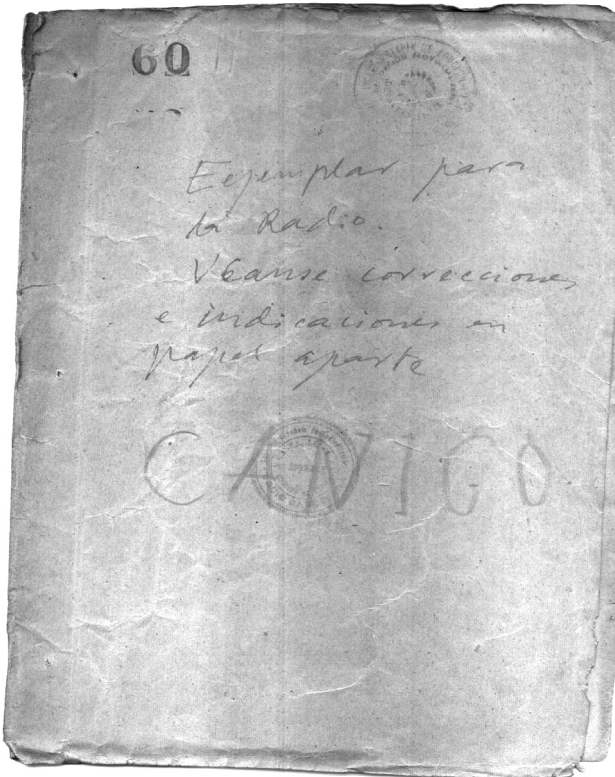 60
Ejemplar para
la Radio.
Véanse correcciones
e indicaciones en
papel aparte
CANIGO